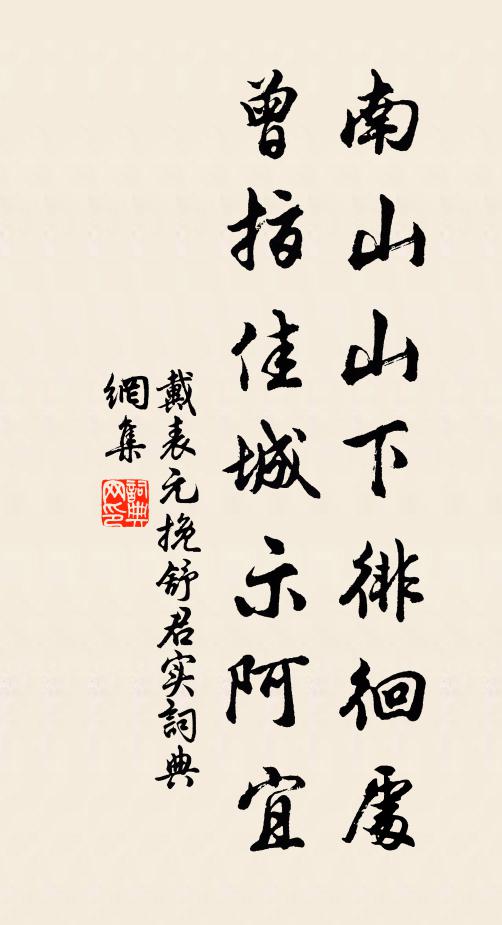 南山山下徘徊處
曾指佳城示阿宜
戴表元挽舒君实詞典
網集
詞典网印